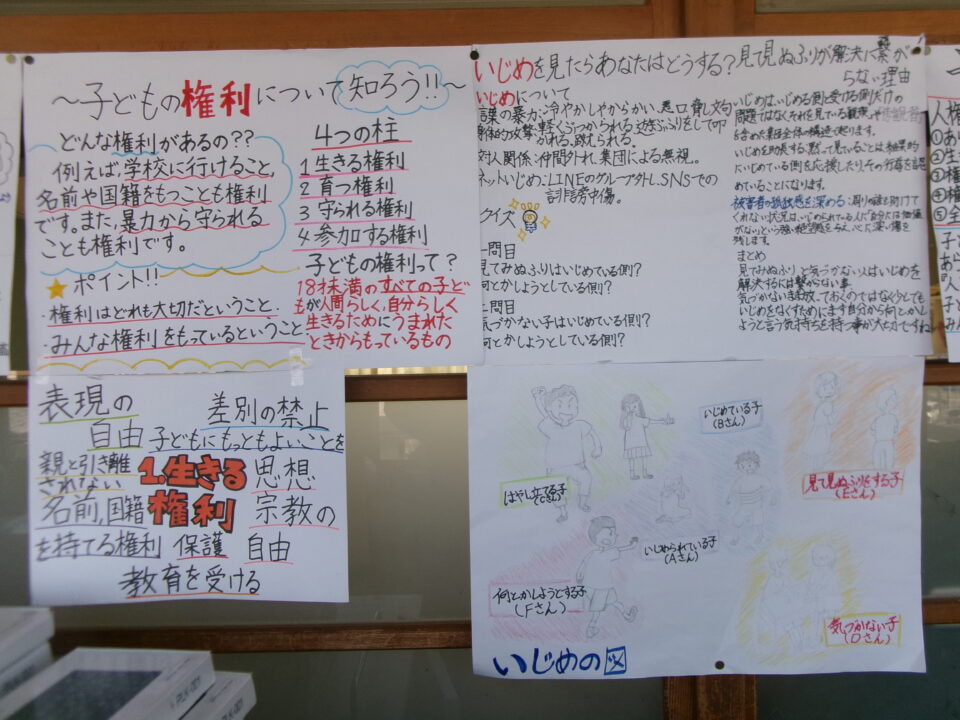 〜子どもの権利について知ろう!!〜
どんな権利があるの??
例えば,学校に行けること,
名前や国籍をもつことも権利
です。また,暴力から守られる
ことも権利です。
4つの柱
1 生きる権利
2 育つ権利
3 守られる権利
4 参加する権利
ポイント!!
・権利はどれも大切だということ
・みんな権利をもっているということ
子どもの権利って?
18才未満のすべての子ど
もが人間らしく,自分らしく
生きるためにうまれた
ときからもっているもの
いじめを見たらあなたはどうする?
いじめについて
暴力:冷やかしやからかい、悪口、脅し文句
対人関係:仲間外れ、集団による無視。
ネットいじめ:LINEのグループ外し、SNSでの
誹謗中傷。
クイズ
一問目
見てみぬふりはいじめている側?
何とかしようとしている側?
二問目
気づかない子はいじめている側?
何とかしようとしている側?
見て見ぬふりが解決に繋が
らない理由
いじめは、いじめる側と受ける側だけの
問題ではなくそれを見ている観衆や傍観者
を含めた集団全体の構造で起ります。
いじめを助長する:黙って見ていることは結果的
にいじめている側を応援したりその行為を認
めていることになります。
被害者の孤独感を深める:周りの誰も助けて
くれない状況は、いじめられている人に「自分には価値
がない」という強い絶望感を与え、心に深い傷を
残します。
まとめ
見てみぬふりと気づかない人はいじめを
解決するには繋がらない事。
気づかないまま放っておくのではなく少しでも
いじめをなくすためにまず自分から何とかし
ようと言う気持ちを持つ事が大切ですね
表現の
自由
差別の禁止
子どもにもっともよいことを
親と引き離
されない
1.生きる
権利
思想
宗教の
自由
名前,国籍
を持てる権利
保護
教育を受ける
はやし立てる子
(Cさん)
いじめている子
(Bさん)
見て見ぬふりをする子
(Eさん)
いじめられている子
(Aさん)
何とかしようとする子
(Fさん)
気づかない子
(Dさん)
いじめの図